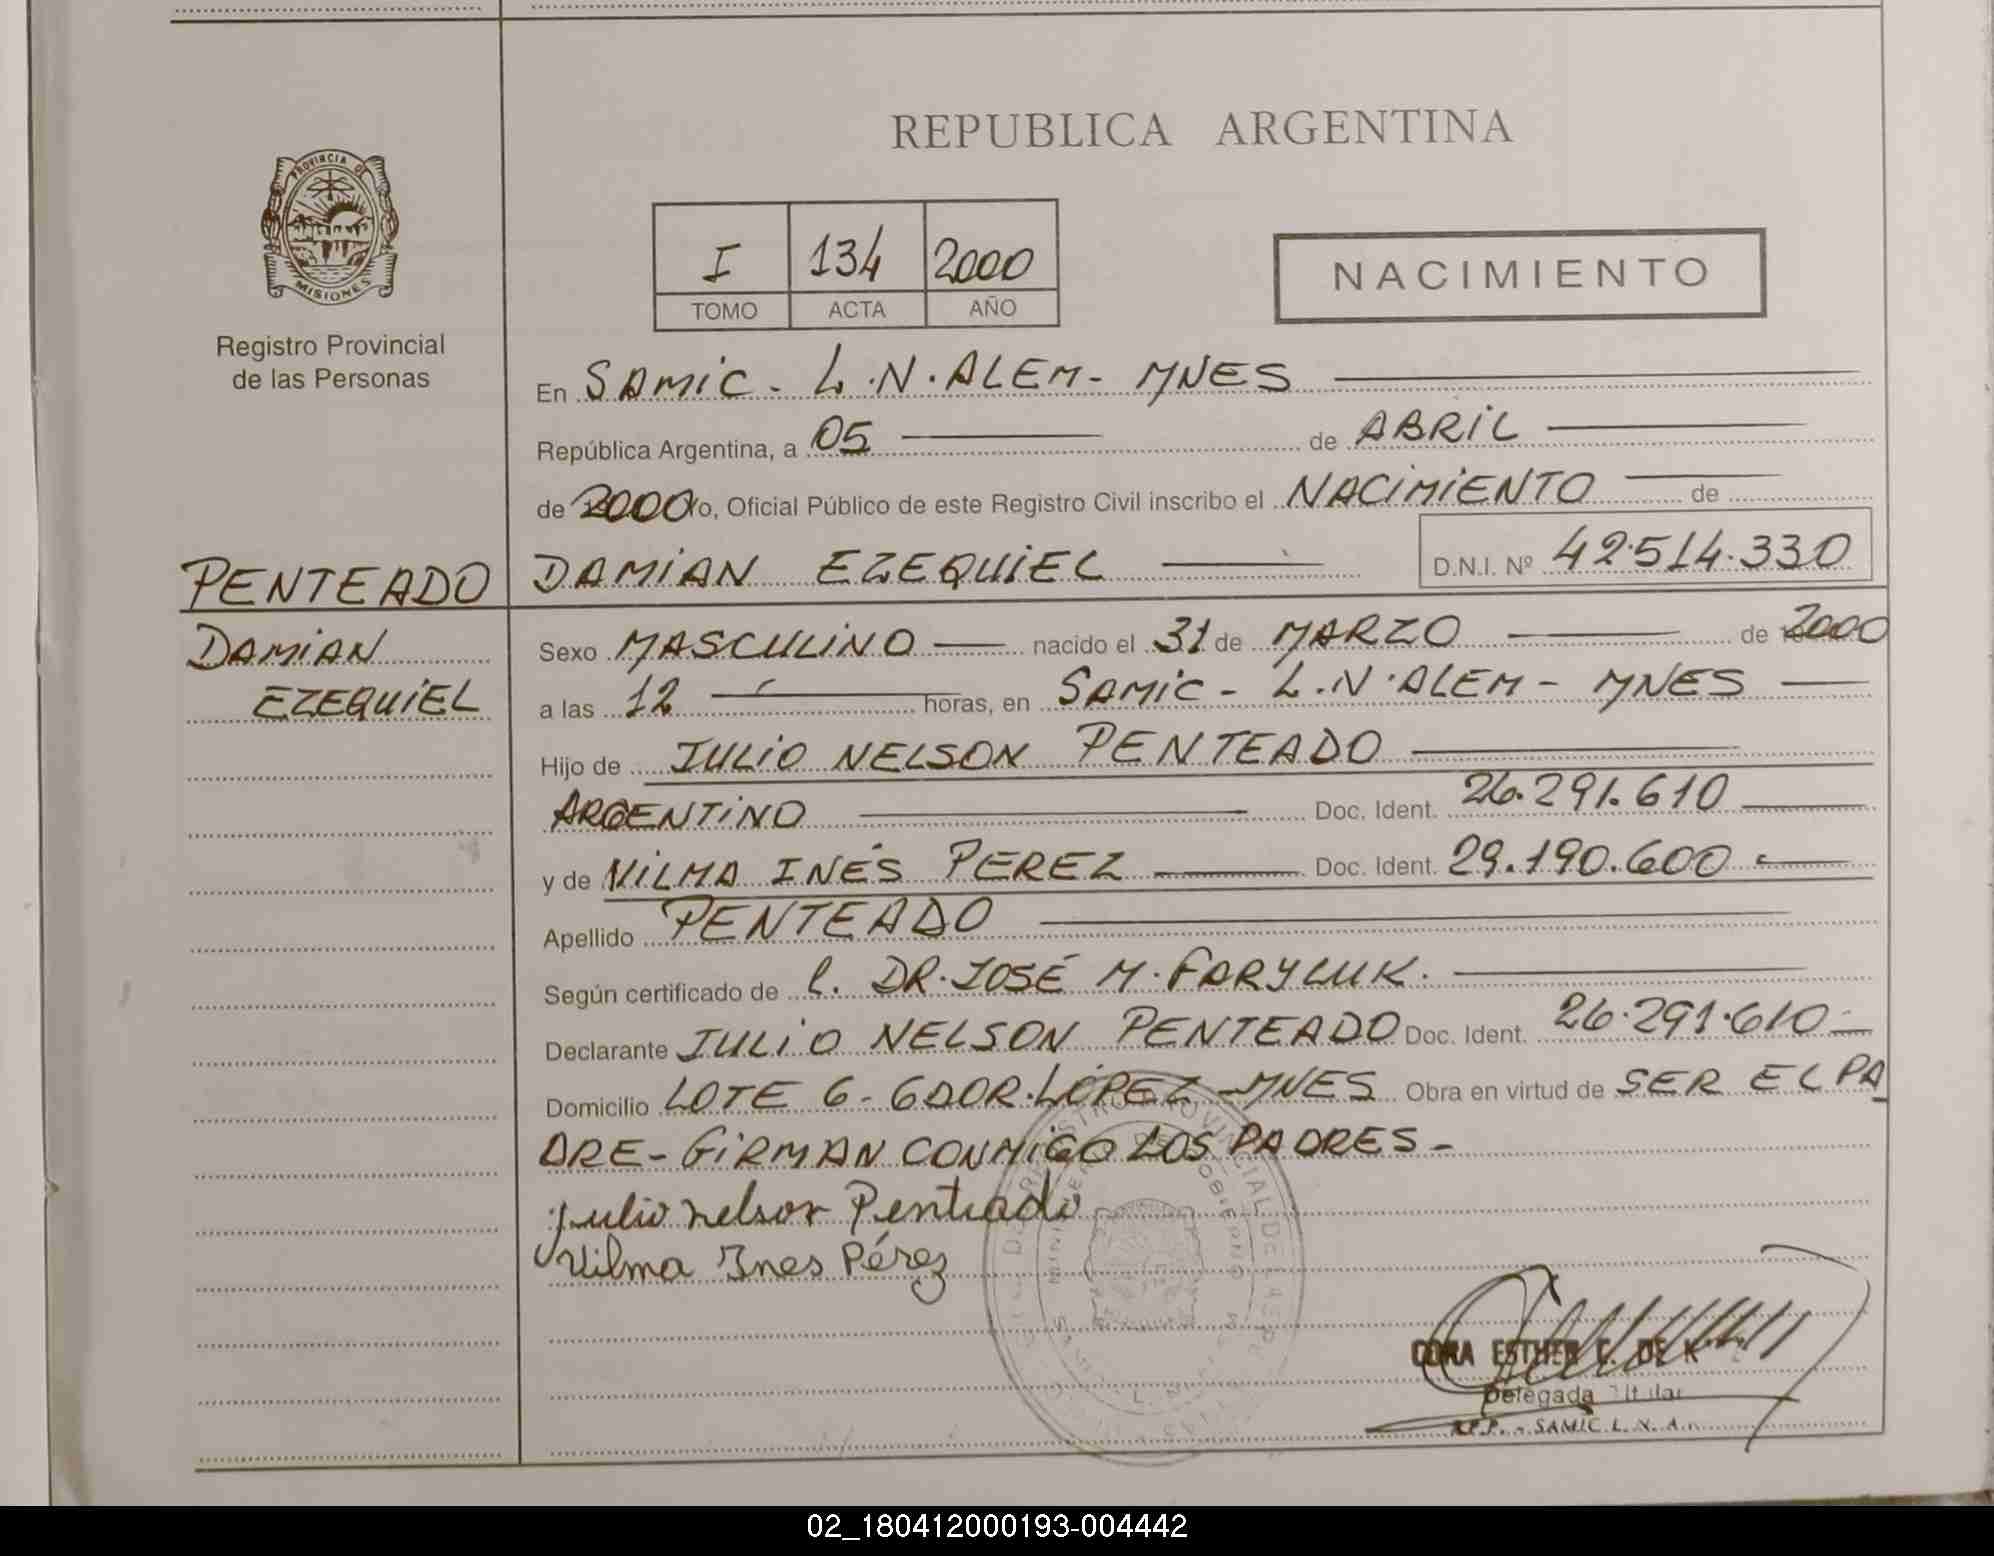 REPUBLICA ARGENTINA
PROVINCIA DE
MISIONES
Registro Provincial
de las Personas
I 134 2000
TOMO ACTA AÑO
NACIMIENTO
En SAMIC - L.N.ALEM - MNES
República Argentina, a 05 de ABRIL
de 2000 Yo, Oficial Público de este Registro Civil inscribo el NACIMIENTO de
PENTEADO DAMIAN EZEQUIEL D.N.I. Nº 42.514.330
DAMIAN
EZEQUIEL
Sexo MASCULINO nacido el 31 de MARZO de 2000
a las 12 horas, en SAMIC - L.N.ALEM - MNES
Hijo de JULIO NELSON PENTEADO
ARGENTINO Doc. Ident. 26.291.610
y de VILMA INÉS PEREZ Doc. Ident. 29.190.600
Apellido PENTEADO
Según certificado de l. DR. JOSÉ M. FARYLUK.
Declarante JULIO NELSON PENTEADO Doc. Ident. 26.291.610
Domicilio LOTE 6 - GDOR. LÓPEZ - MNES Obra en virtud de SER EL PA
DRE - FIRMAN CONMIGO LOS PADRES -
Julio nelson Penteado
Vilma Ines Pérez
CORA ESTHER DE
Delegada Titular
R.P.P. - SAMIC L. N. A.
02_180412000193-004442